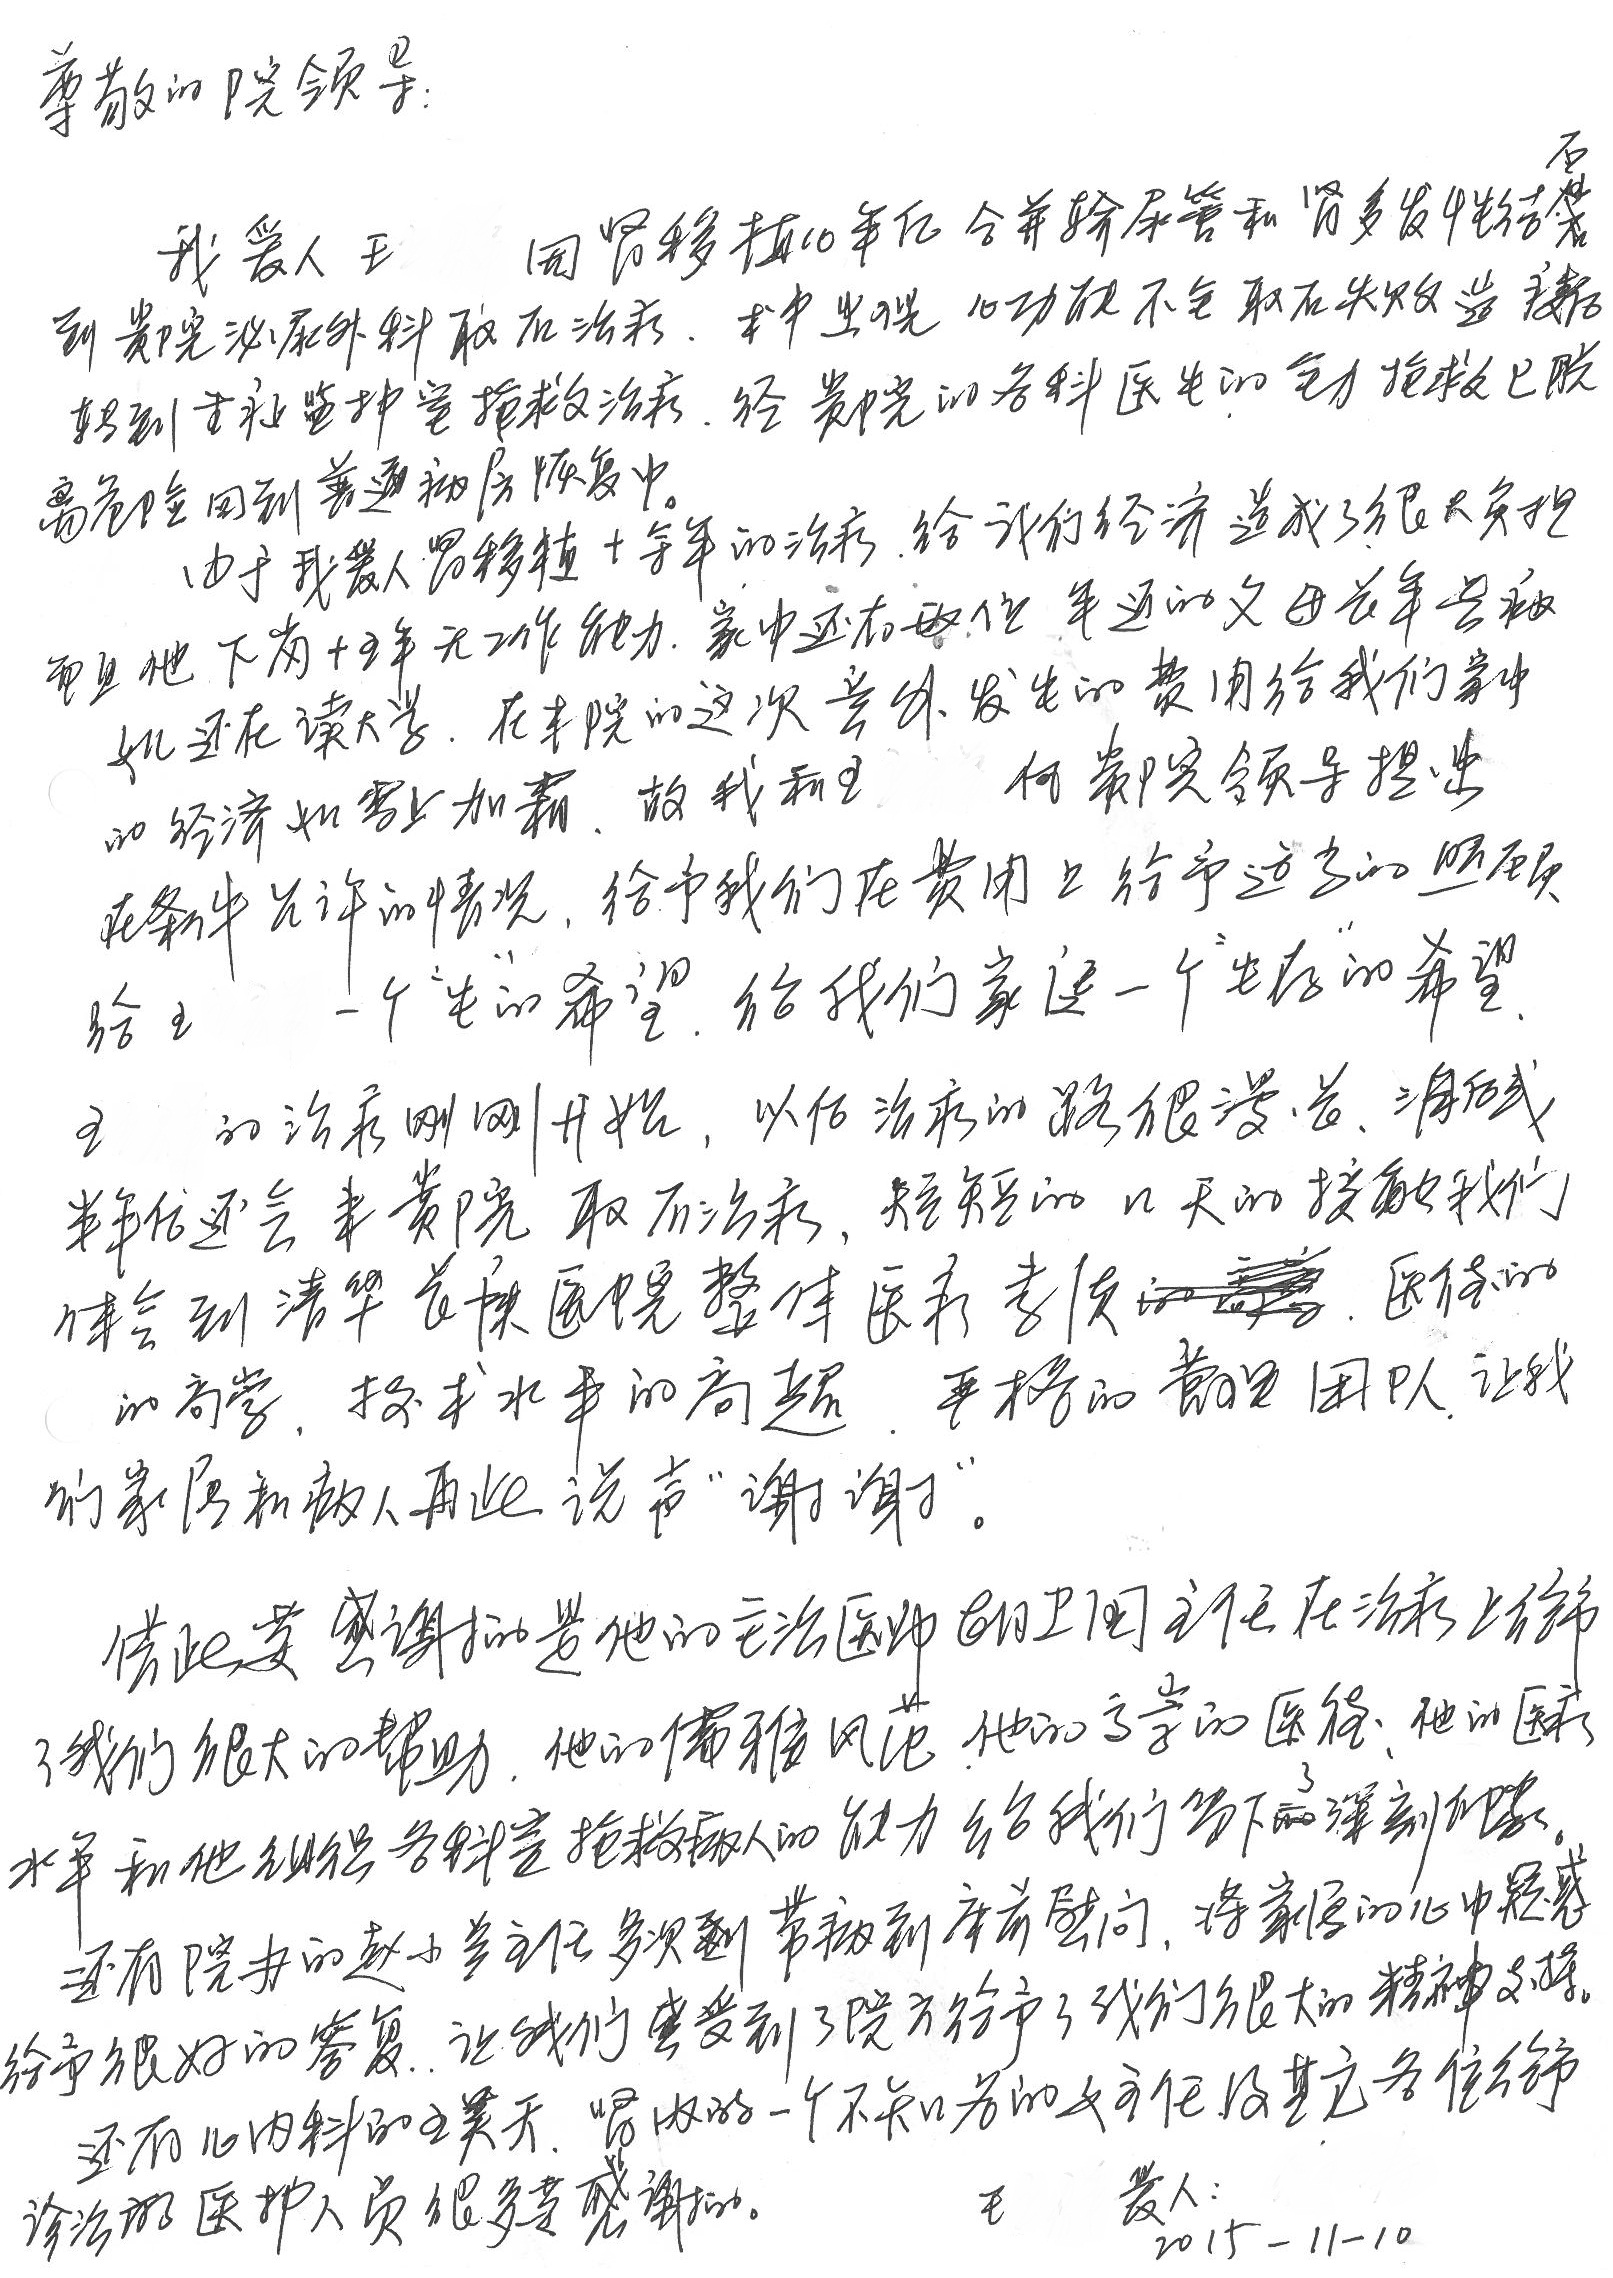 尊敬的院领导:
我爱人王 因肾移植10年后合并输尿管和肾多发性结石
到贵院泌尿外科取石治疗.术中出现心功能不全取石失败
转到重症监护室抢救治疗.经贵院的各科医生的全力抢救已脱
离危险回到普通病房恢复中。
由于我爱人肾移植十余年的治疗.给我们经济造成了很大负担
而且他下岗十五年无工作能力.家中还有两位年迈的父母长年患病
女儿还在读大学.在本院的这次意外发生的费用给我们家中
的经济如雪上加霜.故我和王 向贵院领导提出
在条件允许的情况,给予我们在费用上给予适当的照顾
给王 一个"生"的希望.给我们家送一个"生存"的希望.
王 的治疗刚刚开始,以后治疗的路很漫长、
半年后还会来贵院取石治疗,短短的几天的接触我们
体会到清华长庚医院整体医疗素质.医德的
的高尚,技术水平的高超.严格的管理团队.让我
们家属和病人再此说声"谢谢"。
借此要感谢的是他的主治医师胡卫国主任在治疗上给予
了我们很大的帮助.他的儒雅风范.他的高尚的医德、他的医疗
水平和他组织各科室抢救病人的能力给我们留下了深刻印象。
还有院办的赵小兰主任多次到带病到床前慰问,将家属的心中疑惑
给予很好的答复..让我们感受到了院方给予了我们很大的精神支持。
还有心内科的王昊天.肾内的一个不知门名的女主任及其它各位给予
诊治的医护人员很多要感谢的。
王 爱人:
2015-11-10